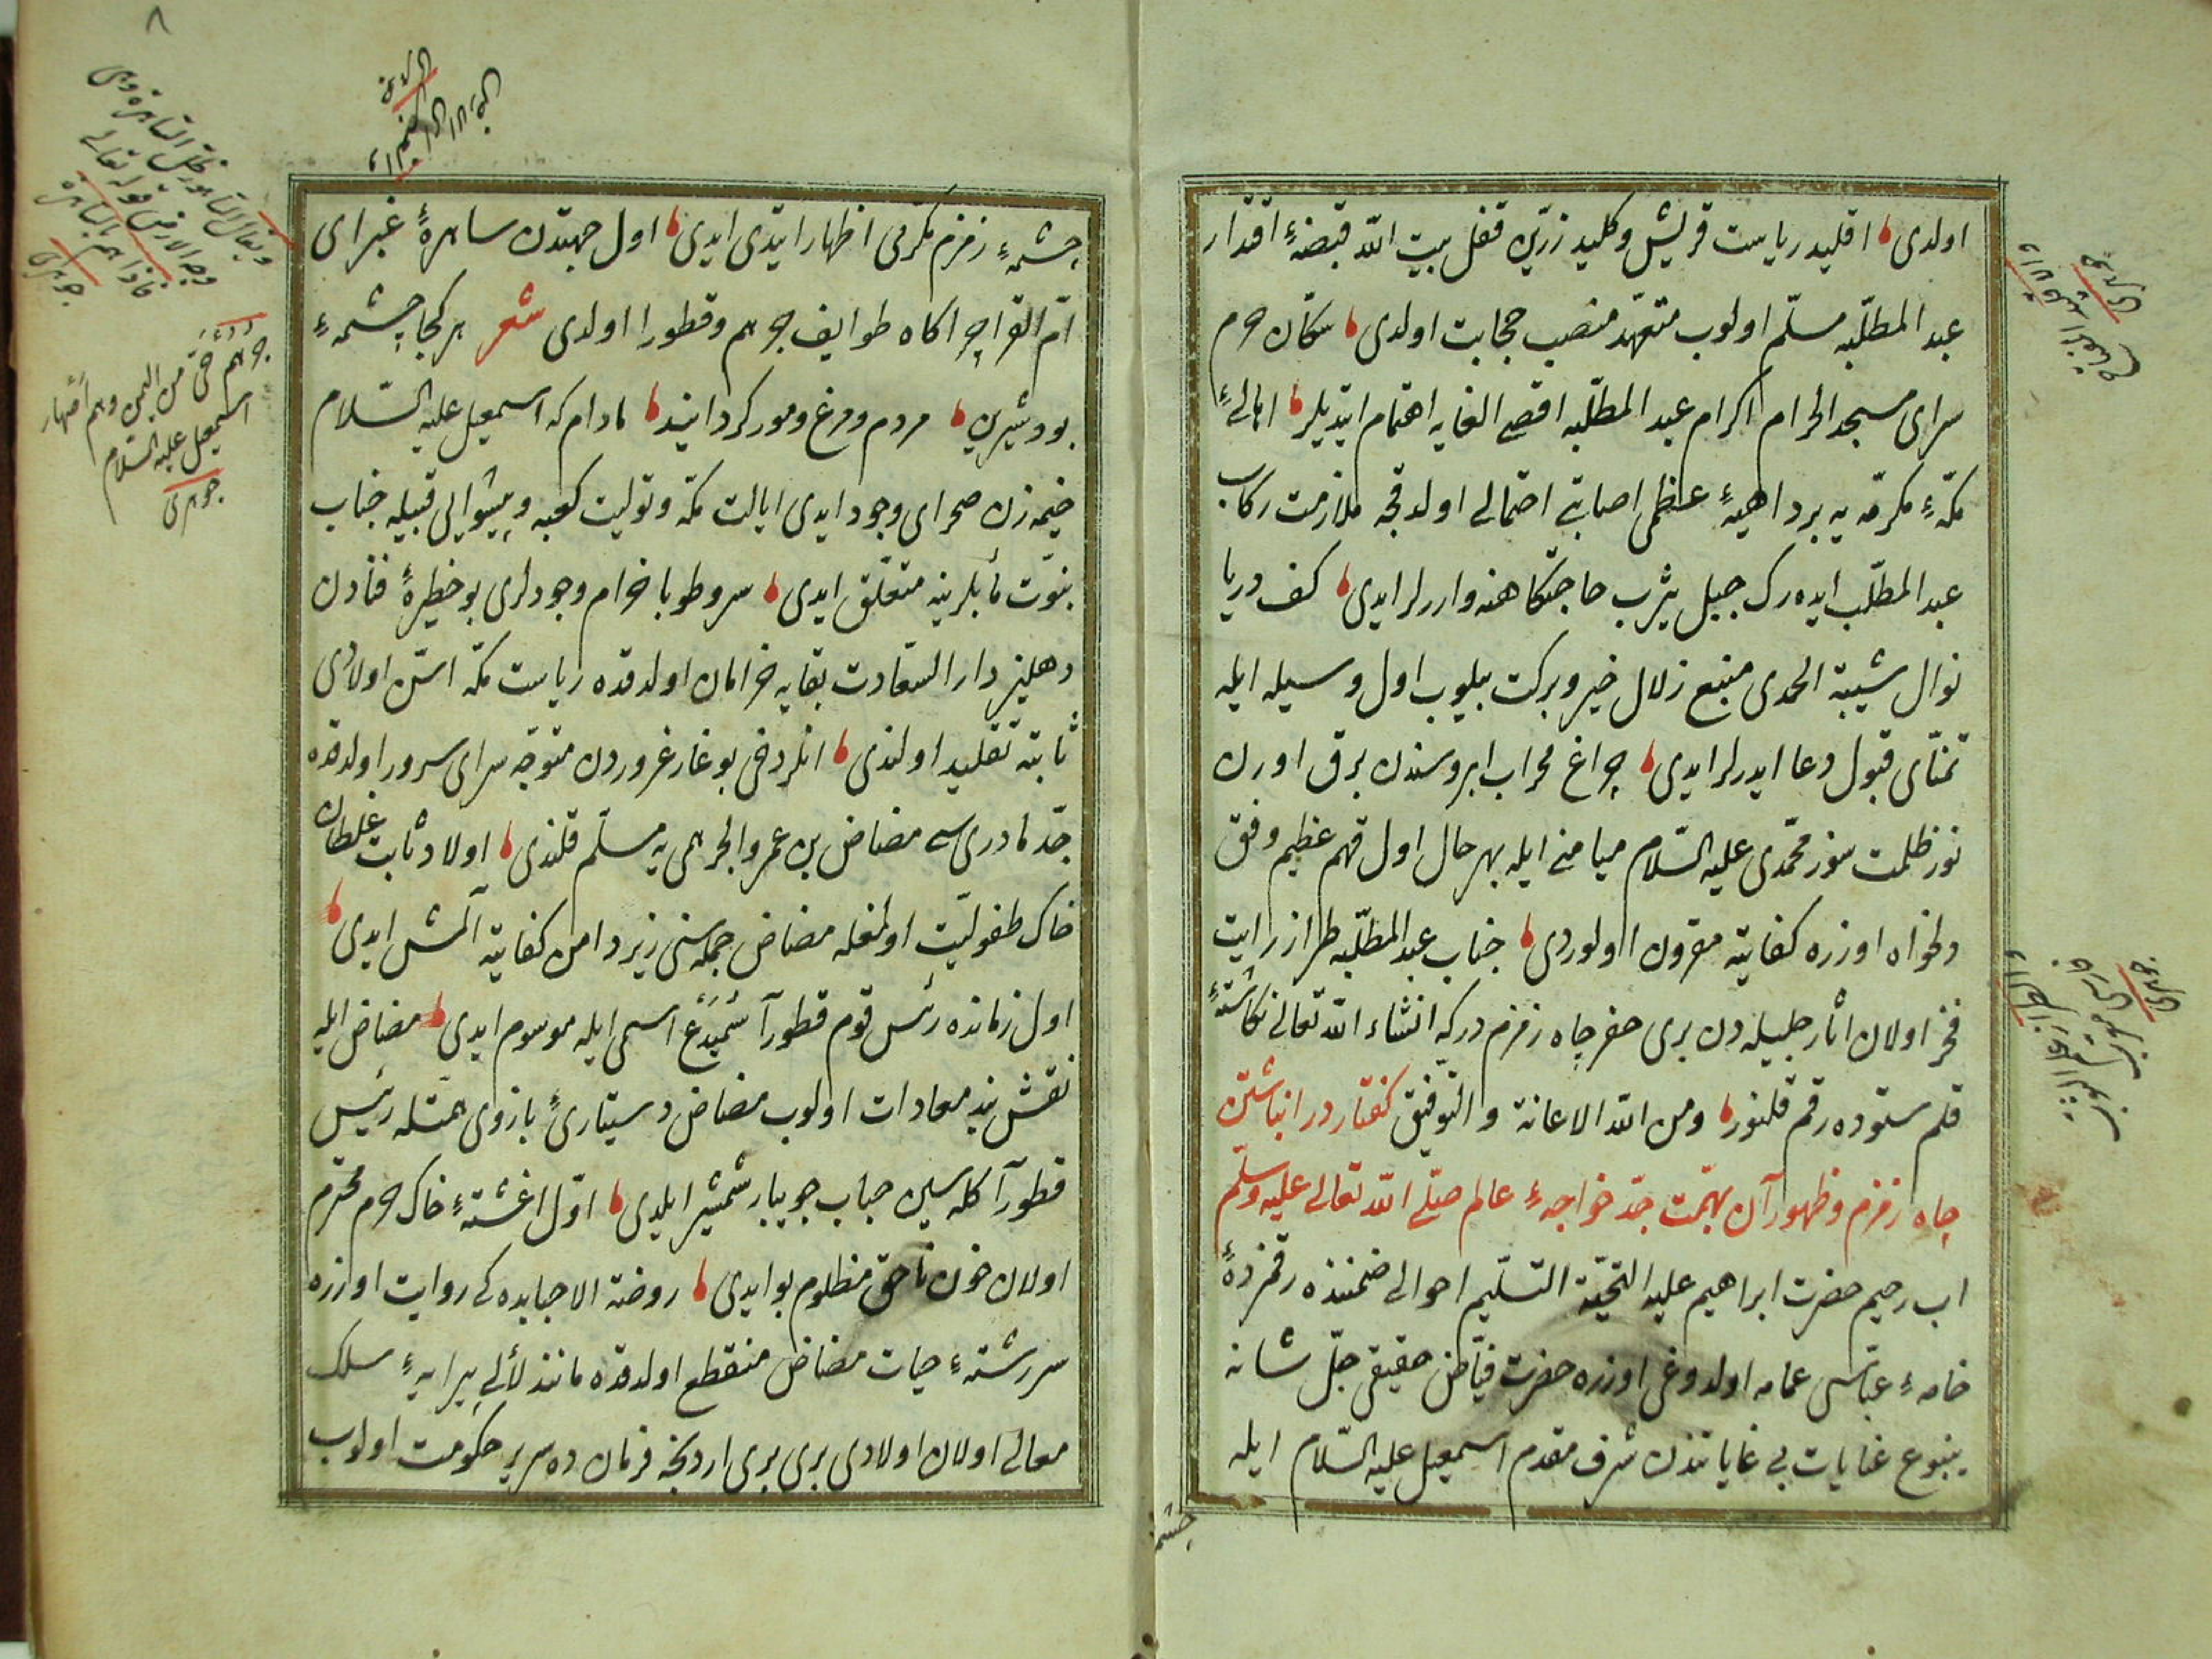 اولدی اقلید ریاست قریش و کلید زرّین قفل بیت الله قبضهٔ اقتدار
عبد المطلّبه مسلّم اولوب متعهّد منصب حجابت اولدی سكّان حرم
سرای مسجد الحرام اکرام عبد المطلّبه اقصی الغایه اهتمام ایتدیلر اهالیٔ
مکّهٔ مکرّمه یه بر داهیهٔ عظمی اصابتی احتمالی اولدقجه ملازمت رکاب
عبد المطلّب ایده رک جبل یثرب حاجتکاهنه واررلر ایدی کف دریا
نوال شیبة الحمدی منبع زلال خیر و برکت بیلوب اول وسیله ایله
تمنّای قبول دعا ایدرلر ایدی چراغ محراب ابروسندن برق اورن
نور ظلمت سوز محمّدی علیه السّلام میامنی ایله بهر حال اول مهم عظیم وفق
دلخواه اوزره کفایته مقرون اولوردی جناب عبد المطلّبه طراز رایت
فخر اولان اثار جلیله دن بری حفر چاه زمزم درکه انشاء الله تعالی نکاشتهٔ
قلم ستوده رقم قلنور ومن الله الاعانة والتوفیق کفتار در انباشتن
چاه زمزم و ظهور آن بهمّت جدّ خواجهٔ عالم صلّی الله تعالی علیه وسلّم
اب رحیم حضرت ابراهیم علیه التحیّة التسلیم احوالی ضمننده رقمزدهٔ
خامهٔ عبّاسی عمامه اولدوغی اوزره حضرت فیّاض حقیقی جلّ شانه
ینبوع عنایات بی غایاتندن شرف مقدم اسمعیل علیه السّلام ایله
چشمهٔ
چشمهٔ زمزم مکرّمی اظهار ایتدی ایدی اول جهتدن ساهرهٔ غبرای
امّ القرا چراکاه طوایف جرهم و قطورا اولدی شعر هر کجا چشمهٔ
بود شیرین مردم و مرغ و مور کرد ایند مادام که اسمعیل علیه السّلام
خیمه زن صحرای وجود ایدی ایالت مکّه و تولیت کعبه و پیشوایی قبیله جناب
نبوّت مآبلرینه متعلّق ایدی سرو طوبا خرام وجودلری بو خطیرهٔ فنادن
دهلیز دار السّعادت بقایه خرامان اولدقده ریاست مکّه اسنّ اولادی
ثابته تقلید اولندی انلر دخی بو غار غروردن متوجّه سرای سرور اولدقده
جدّ مادری سی مضاض بن عمرو الجرهمی یه مسلّم قلندی اولاد ثابت غلطان
خاک طفولیّت اولمغله مضاض جمله سنی زیر دامن کفایته آلمش ایدی
اول زمانده رئس قوم قطورآ سُمَیدَع اسمی ایله موسوم ایدی مضاض ایله
نقش بند معادات اولوب مضاض دستیاریٔ بازوی همّتله رئیس
قطورآ کله سین حباب جویبار شمشیر ایلدی اوّل اغشتهٔ خاک حرم محترم
اولان خون ناحق مظلوم بو ایدی روضة الاحبابده کی روایت اوزره
سررشتهٔ حیات مضاض منقطع اولدقده مانند لألی پیرایهٔ سلک
معالی اولان اولادی بری بری اردنجه فرمان ده سریر حکومت اولوب
٨
ویقال الساهور ظلّ الساهرة وهی
وجه الارض قوله تعالی
فاذا هم بالساهرة
جوهری
جرهم حیّ من الیمن وهم اصهار
اسمعیل علیه السّلام
جوهری